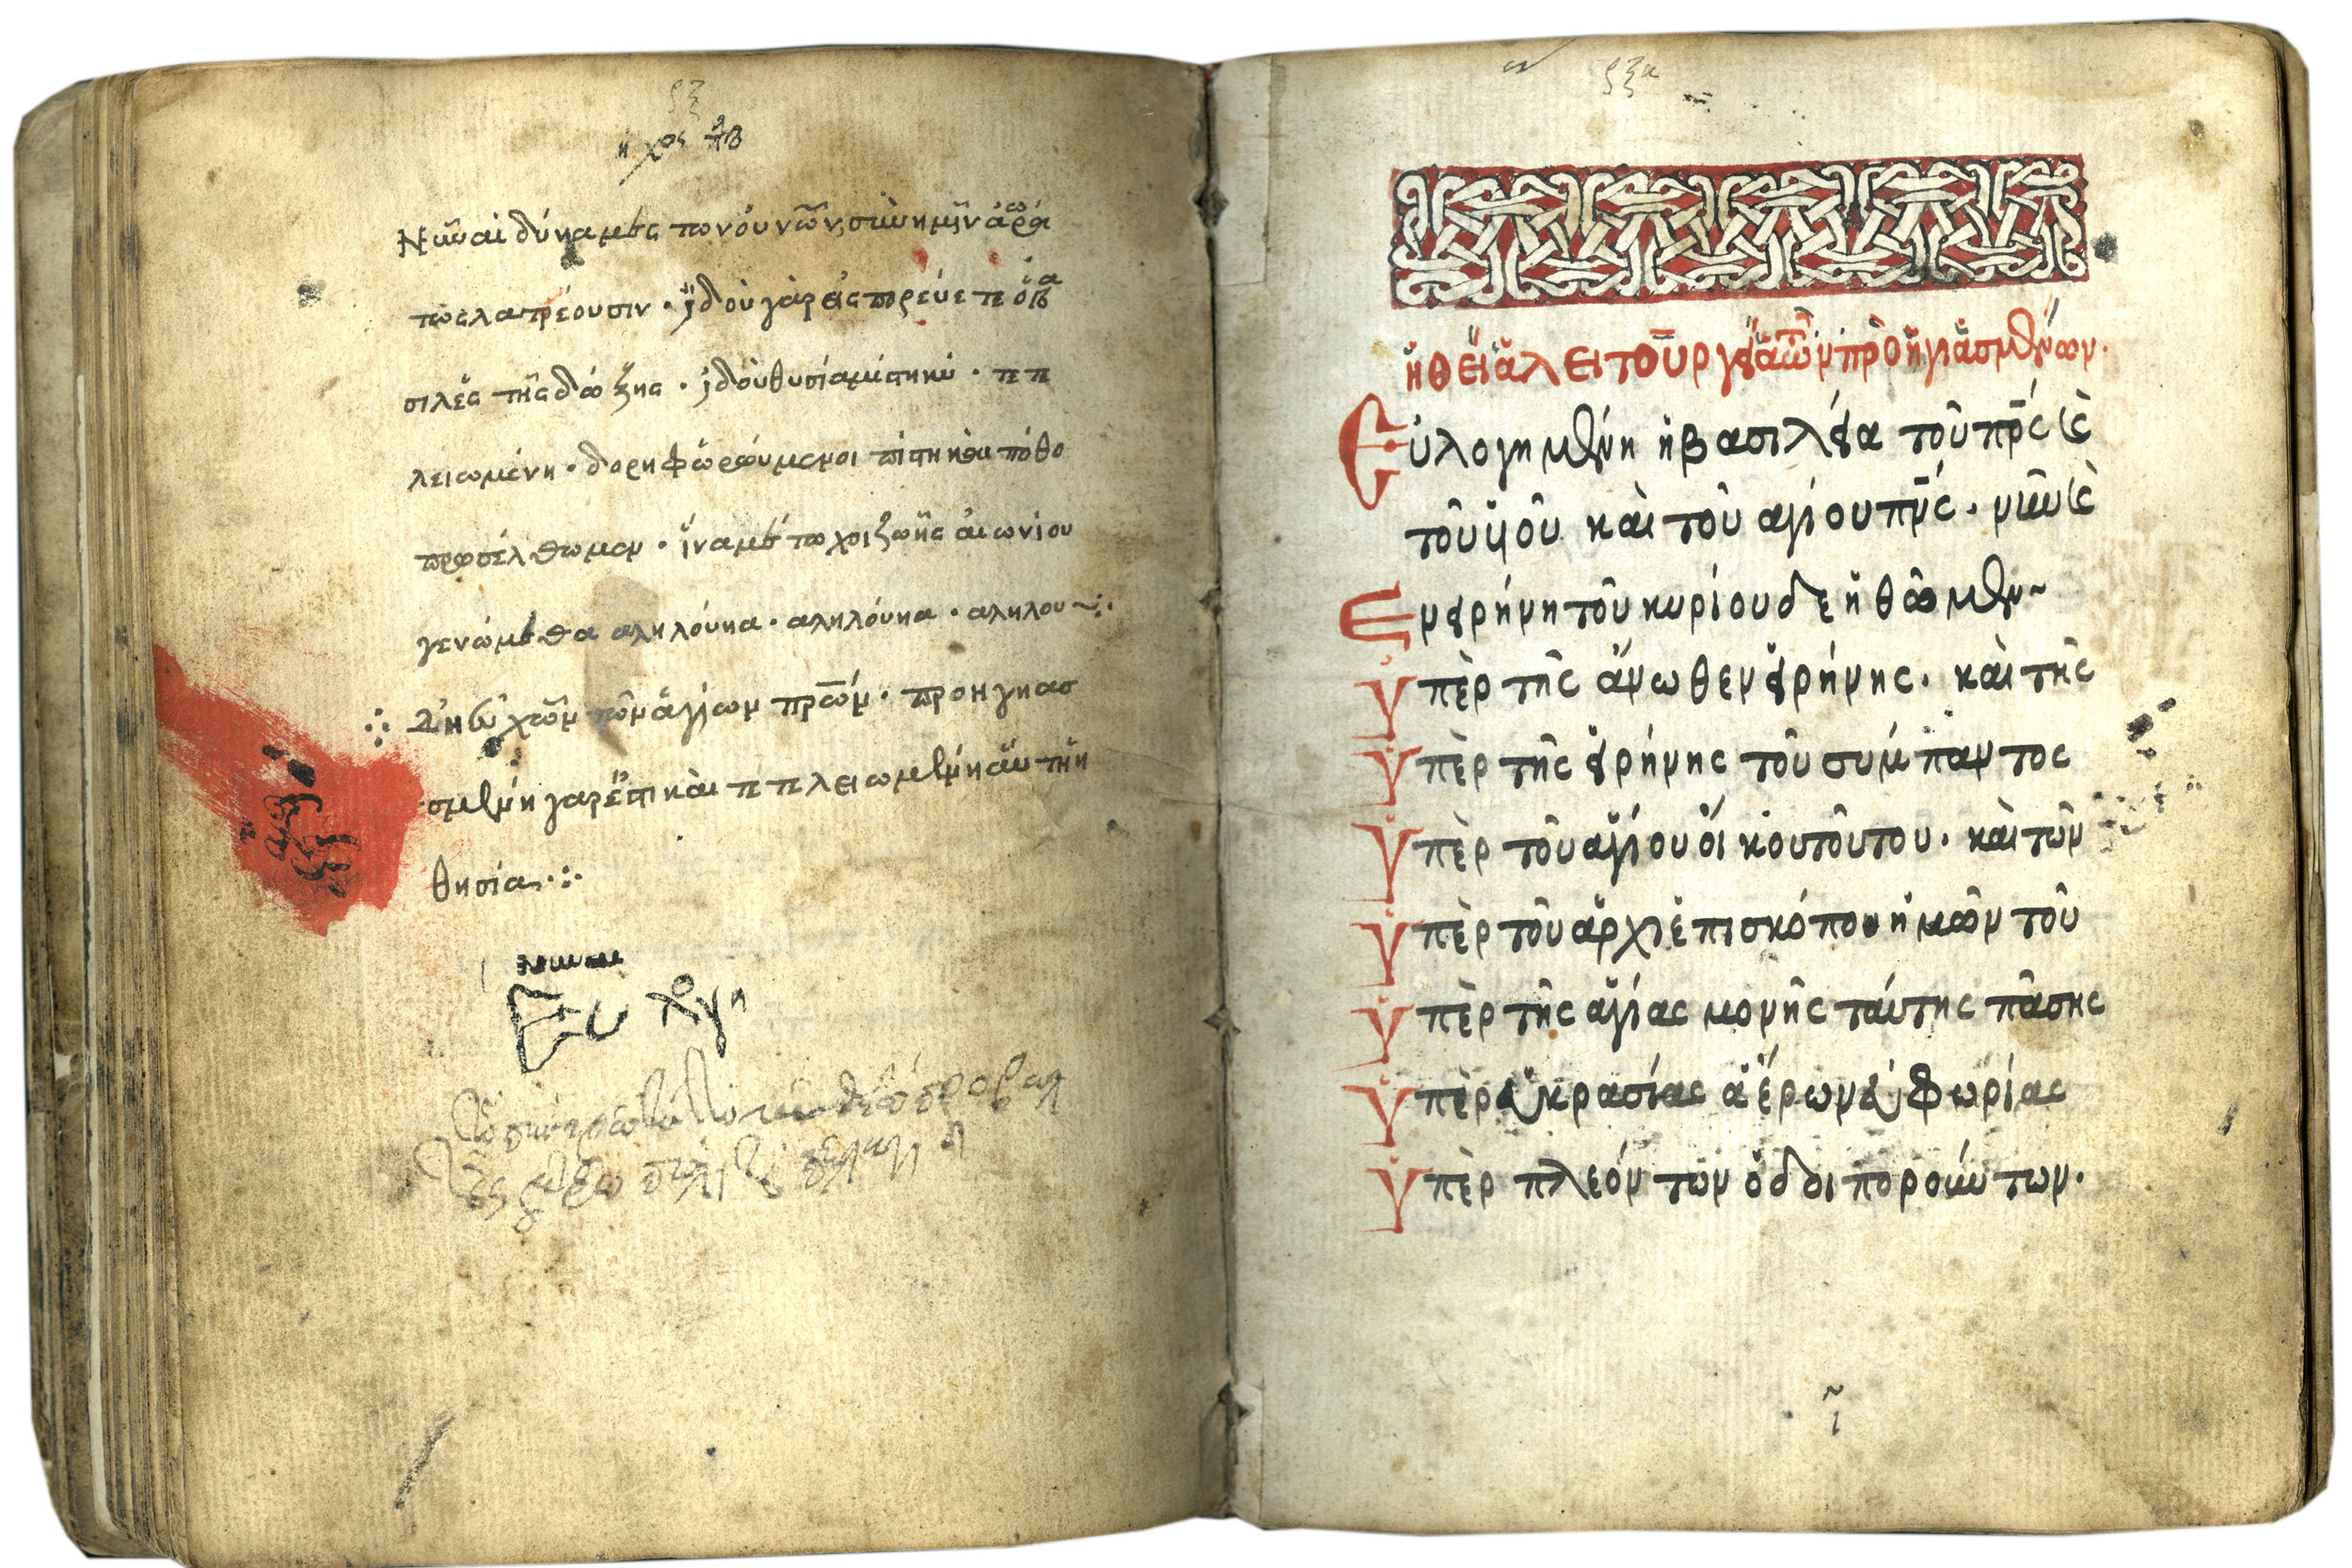 ρξ
ἦχος πβ
Νῦν αἱ δύναμεις τον οὐνῶν, σὺν ημῖν ἀορά
τως λατρέουσιν · ἰδοὺ γὰρ εἰς πορεύετε ὁ βα
σιλεὺς τῆς δώξης · ἰδοὺ θυσία μίστηκὺ · τετε
λειωμένη · δορηφωρούμενοι πίστη καὶ πόθο
προσέλθωμεν · ἵνα μέτωχοι ζωῆς αἰωνίου
γενώμεθα αληλούηα · αληλούηα · αληλου
Δη εὐχῶν τῶν ἁγίων πρων · προηγηασ
σμένη γαρ ἔστι καὶ τετελειωμένη αὕτη ἡ
θησία
ρξα
ἡ θεία λειτουργία τῶν προηγιασμένων.
Εὐλογημένη ἡ βασιλεία τοῦ πρς κὲ
τοῦ ὑοῦ καὶ τοῦ αγίου πνς · νῦν κὲ
Εν εἰρήνη τοῦ κυρίου δεηθῶμεν
Ὑπὲρ τῆς ἄνωθεν εἰρήνης · καὶ τῆς
Ὑπὲρ τῆς εἰρήνης τοῦ σύμπαντος
Ὑπὲρ τοῦ αγίου οἴκου τοῦτου · καὶ τῶν
Ὑπὲρ τοῦ ἀρχιἐπισκόπου ἡμῶν τοῦ
Ὑπὲρ τῆς αγίας μονῆς ταύτης πᾶσης
Ὑπὲρ εὐκρασίας αἔρων εὐφωρίας
Ὑπὲρ πλεόντων ὁδοιπορούντων.
ι